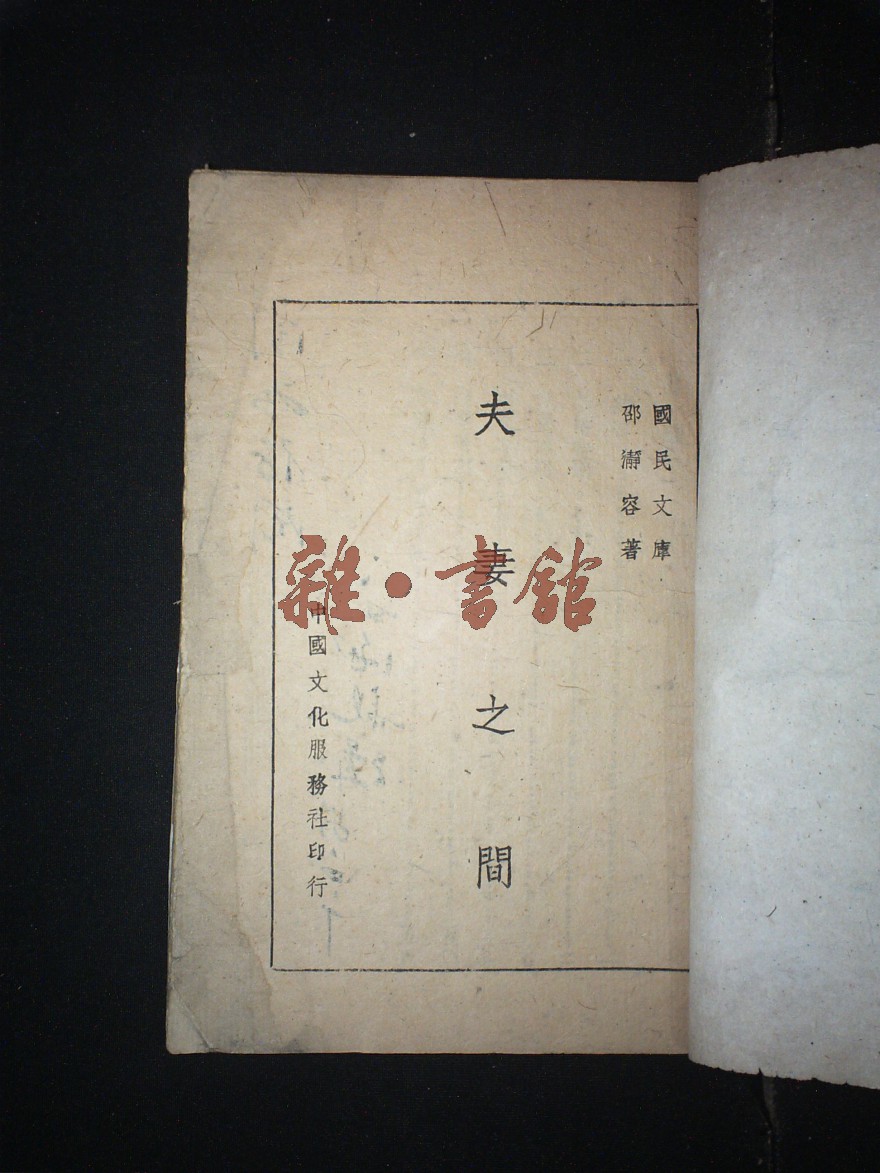 國民文庫
邵瀞容著
夫妻之間
中國文化服務社印行
雜·書館